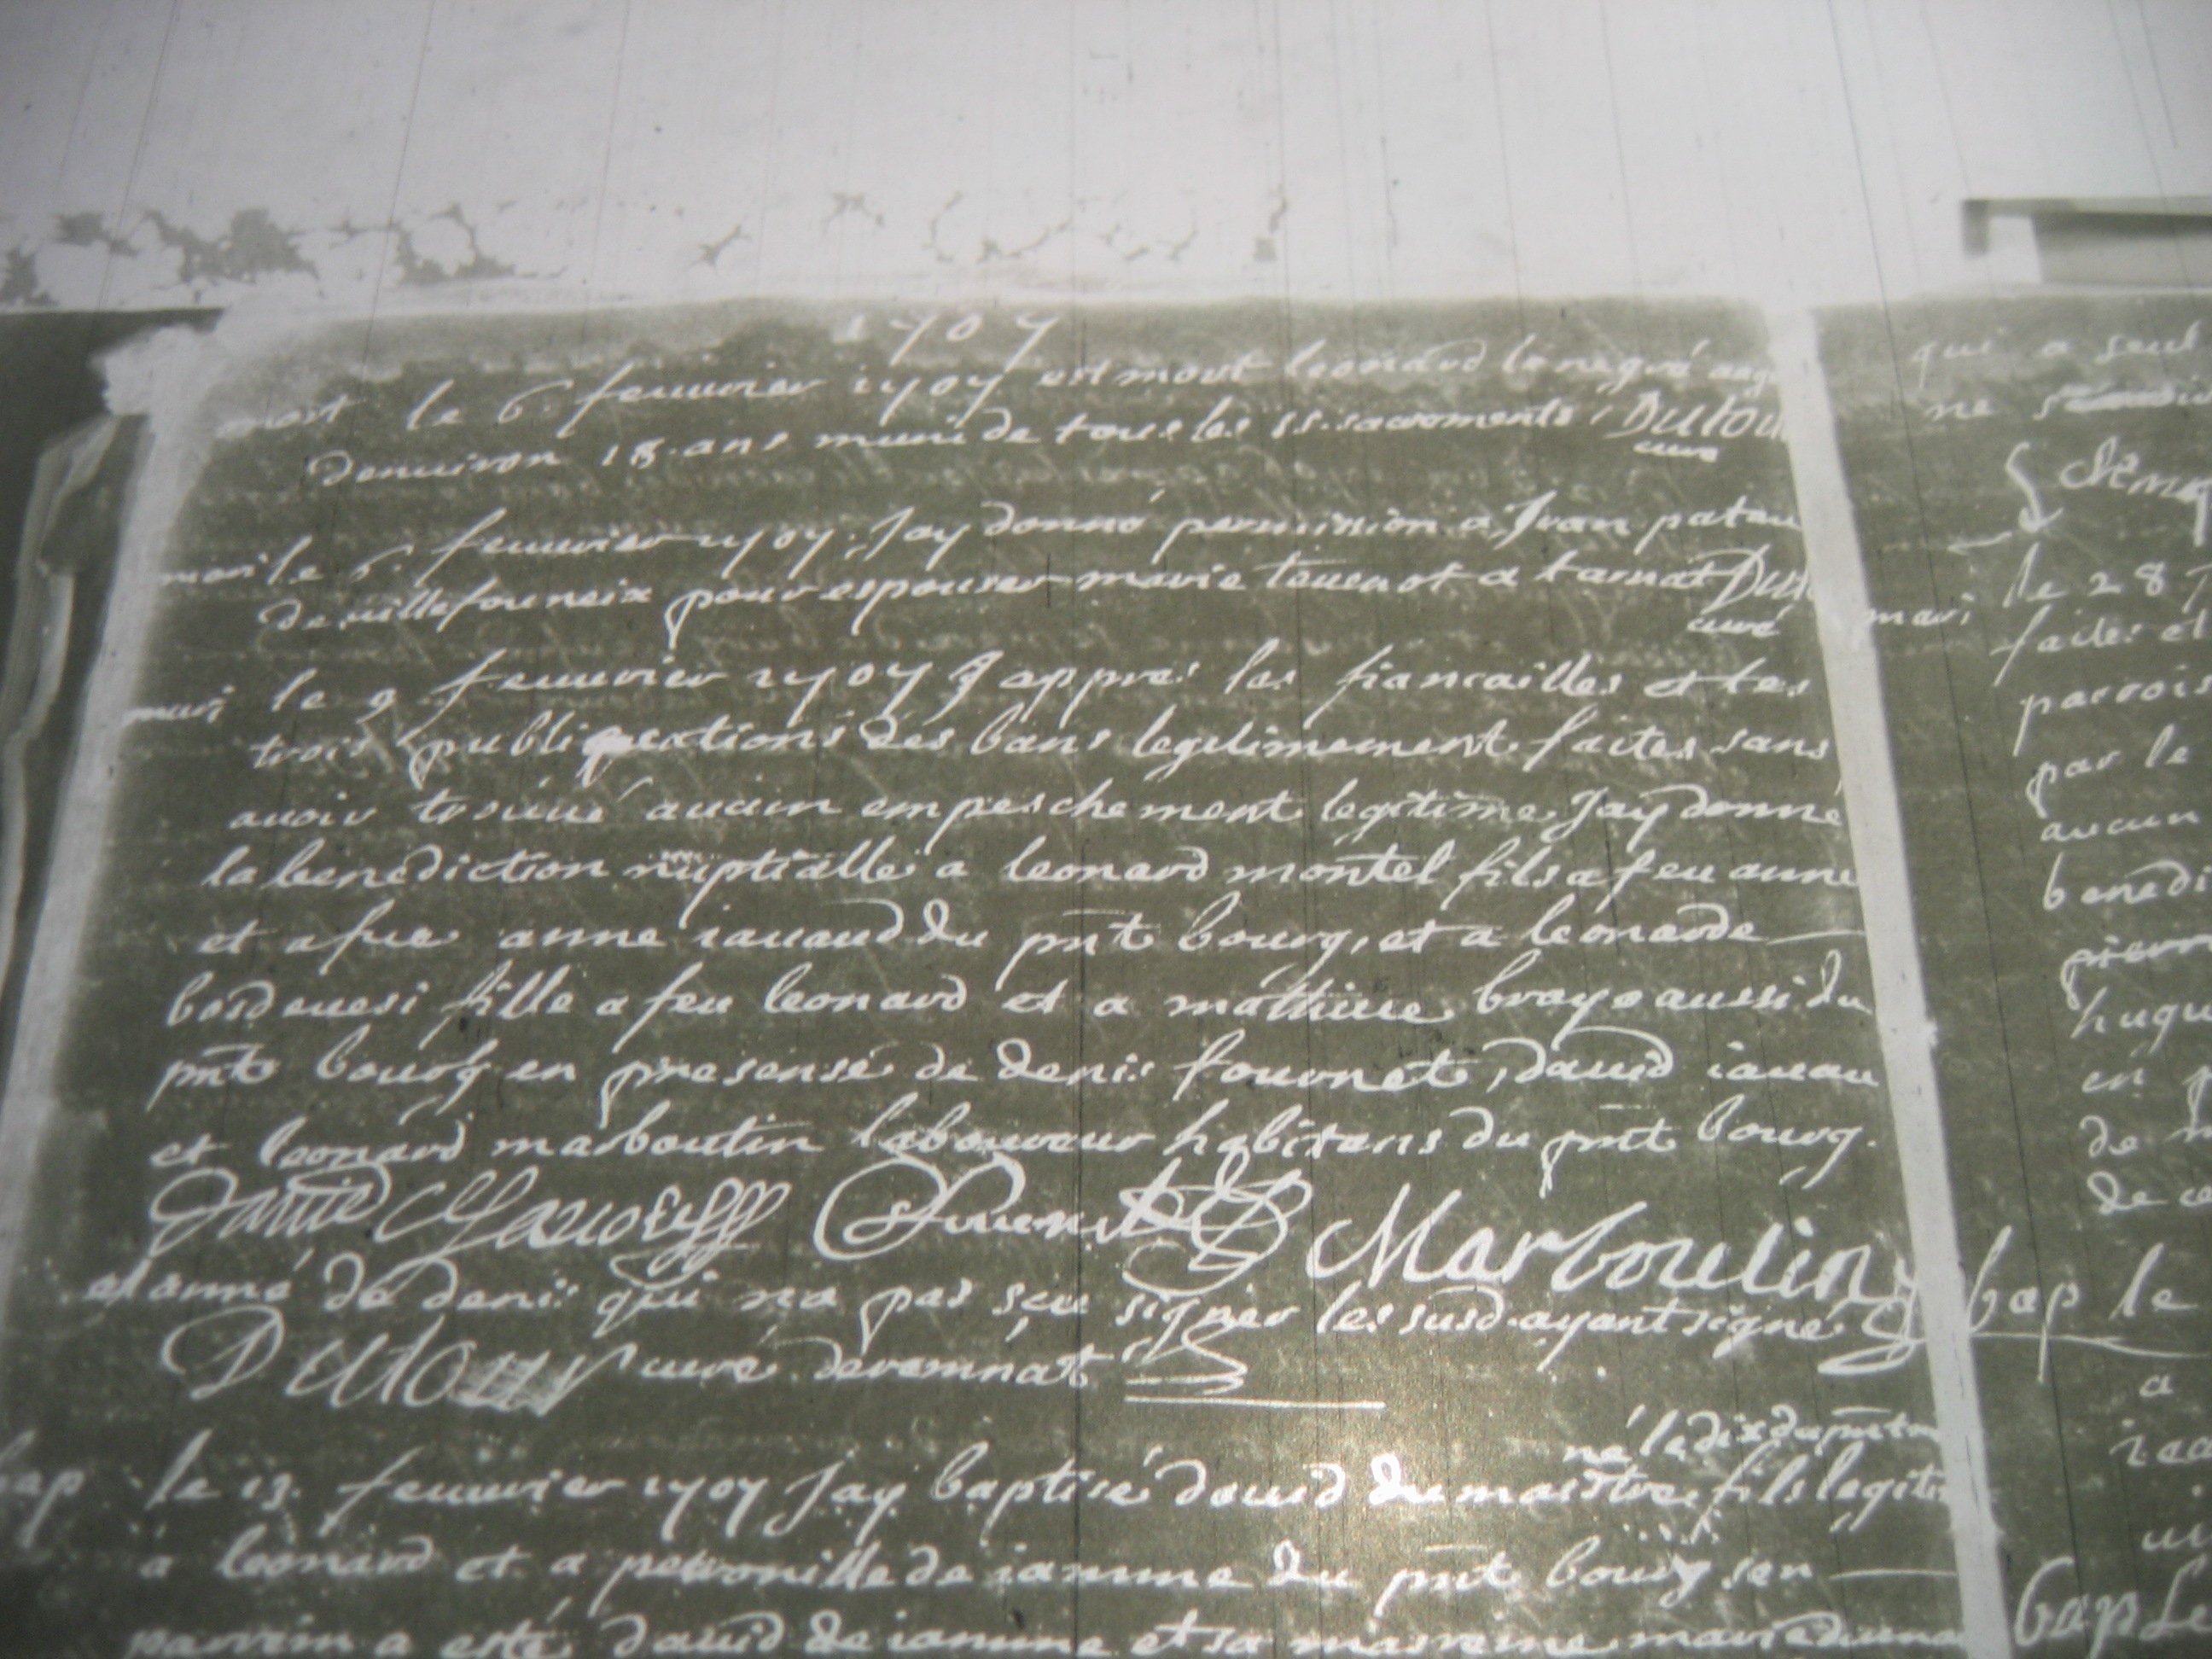 1707
mort le 6. feuurier 1707 est mort leonard le negré
denuiron 18. ans muni de tous les ss. sacremonts, Dutou
cure
mari le 6. feuurier 1707. Jay donné permission a Jean
de uillefouneix pour espouser marie teuenot a tarnat
curé
mari le 9 feuurier 1707 appres les fiancailles et les
trois publiquations des bans legitimement faites sans
auoir trouué aucun empeschement legitime Jay donné
la benediction nuptialle a leonard montel fils a feu
et a fue anne iauaud du pnt bourg, et a leonarde
bordeuesi fille a feu leonard et a mathiue braye aussi du
pnt bourg en presense de denis fournet, dauid iauau
et leonard marboutin laboureur habitans du pnt bourg.
Marboutin
de denis qui na pas sçu signer les susd. ayant signé
Dutour curé deremnat
bap le 13. feuurier 1707 Jay baptisé douid du maistre fils legitim
né le dix du pnt m
a leonard et a petronille de iamme du pnt bourg son
parrein a esté dauid de iamme et sa marreine marie
qui a seul
ne
le 28
mari faites et
parrois
par le
aucun
benedi
pierre
hugu
en p
de
de
bap le
a
bap Le